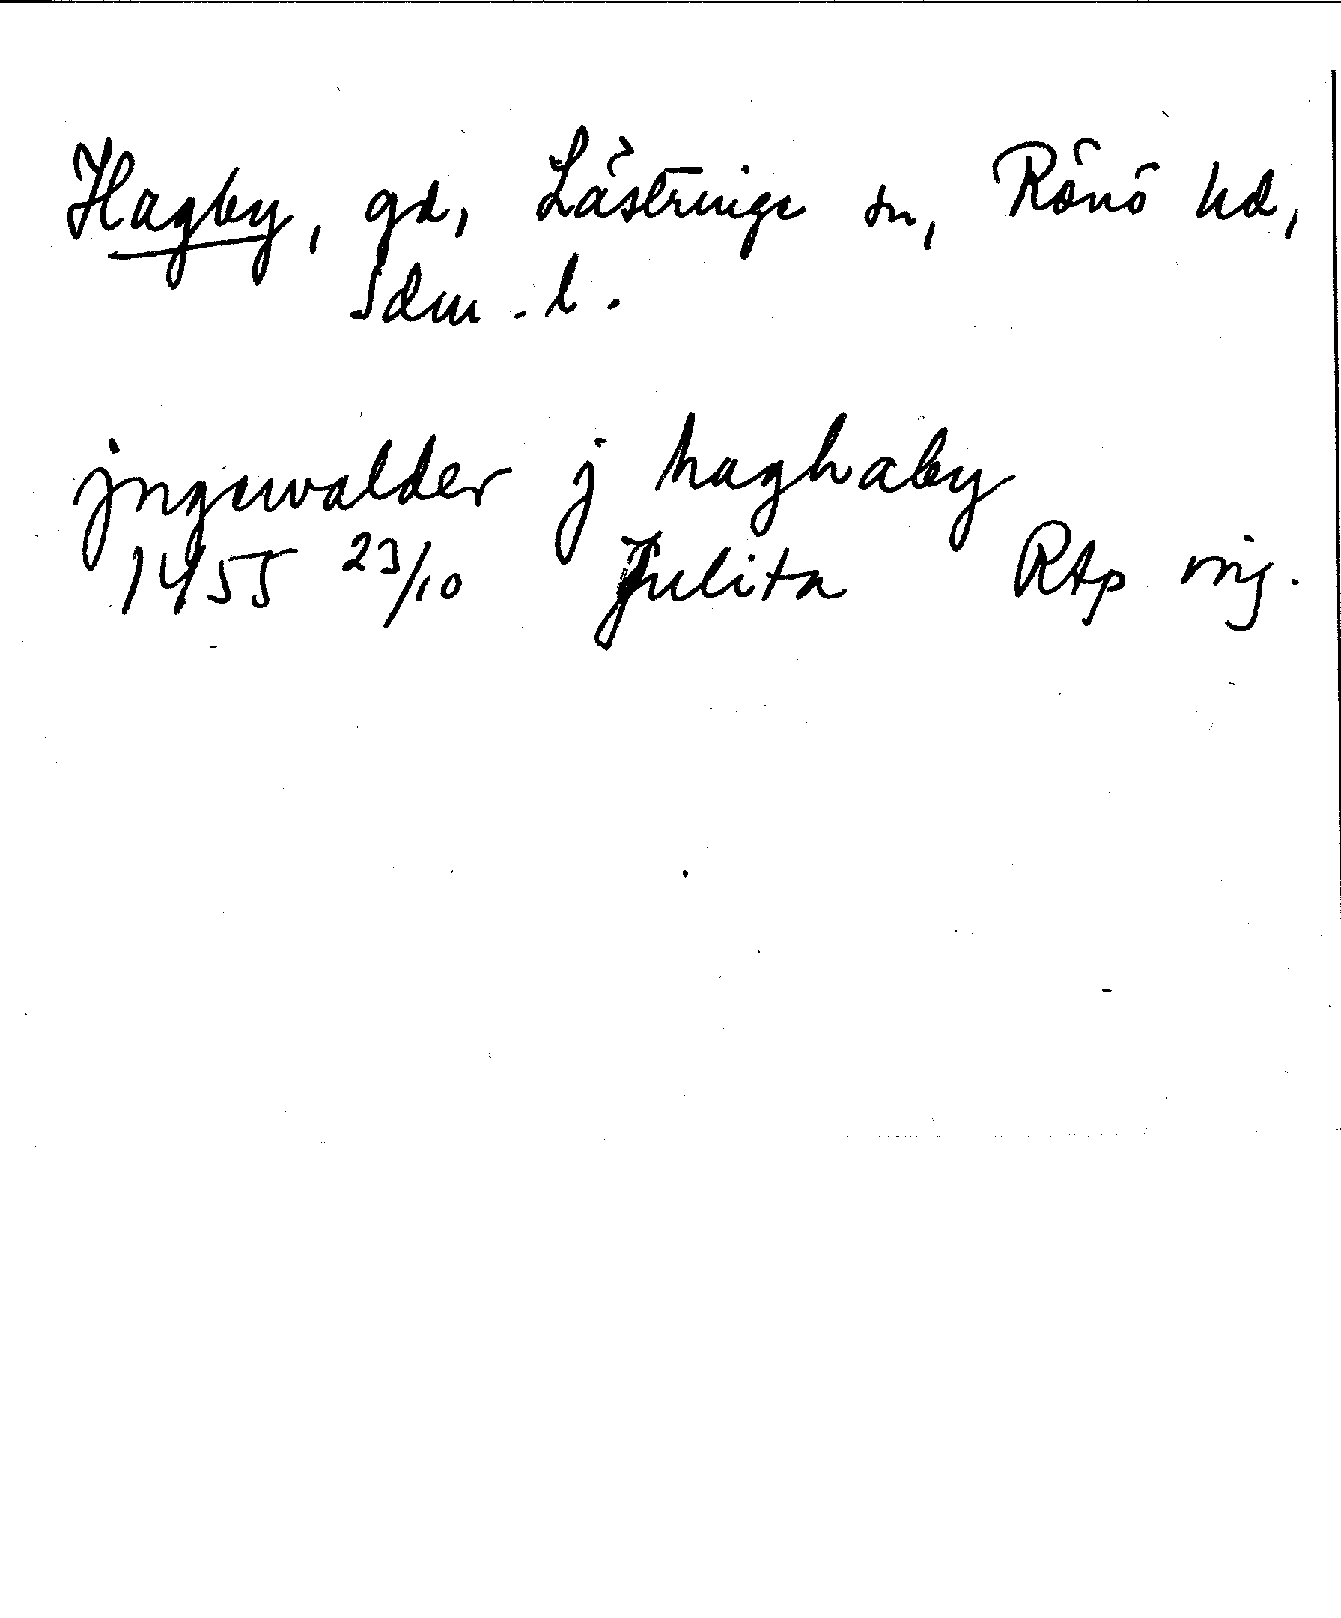 Hagby, gd, Lästringe sn, Rönö hd,
Sdm. l.
jngewalder j haghaby
1455 23/10 Julita Rtp orig.